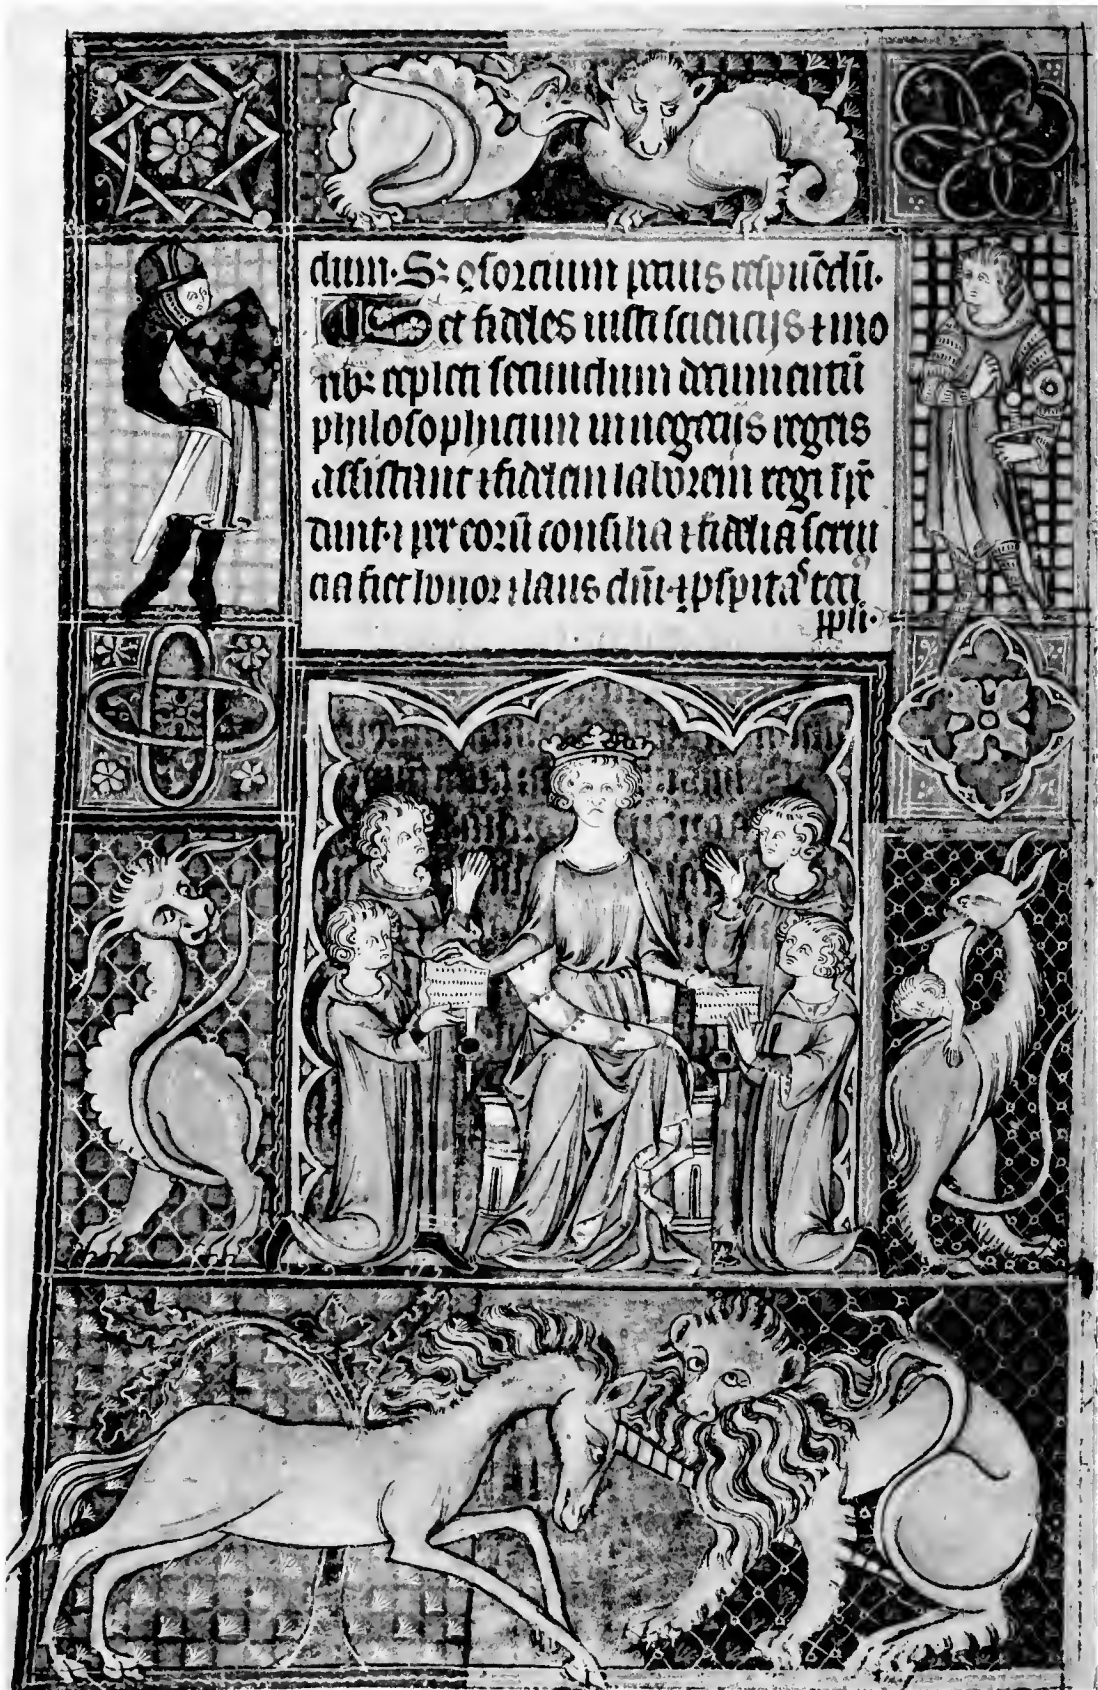 dum. Sꝫ ꝯsorcium prauis respuēdū.
Et fideles iusti sciencijs ⁊ mo
ribꝫ repleti secundum documentū
philosophicum in negocijs regis
assistant ⁊ fidelem laborem regi
dunt. ⁊ per eorū consilia ⁊ fidelia serui
cia fiet honor ⁊ laus dñi ⁊ ꝓsꝑitas toci
ppli.